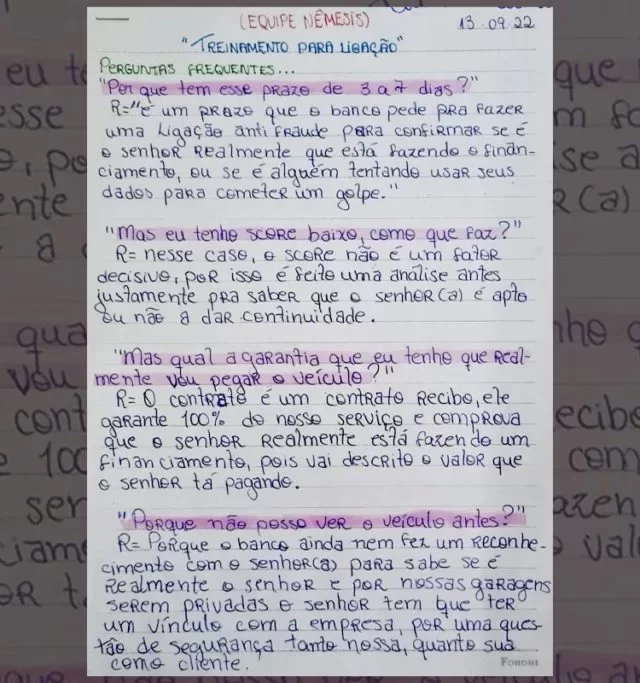 (EQUIPE NÊMESIS)
13.09.22
"TREINAMENTO PARA LIGAÇÃO"
PERGUNTAS FREQUENTES...
"Por que tem esse prazo de 3 a 7 dias?"
R="é um prazo que o banco pede pra fazer
uma ligação anti fraude para confirmar se é
o senhor realmente que está fazendo o finan-
ciamento, ou se é alguém tentando usar seus
dados para cometer um golpe."
"Mas eu tenho score baixo, como que faz?"
R= nesse caso, o score não é um fator
decisivo, por isso é feito uma análise antes
justamente pra saber que o senhor(a) é apto
ou não a dar continuidade.
"Mas qual a garantia que eu tenho que real-
mente vou pegar o veículo?"
R= O contrato é um contrato recibo, ele
garante 100% do nosso serviço e comprova
que o senhor realmente está fazendo um
financiamento, pois vai descrito o valor que
o senhor tá pagando.
"Porque não posso ver o veículo antes?"
R= Porque o banco ainda nem fez um reconhe-
cimento com o senhor(a) para sabe se é
realmente o senhor e por nossas garagens
serem privadas o senhor tem que ter
um vínculo com a empresa, por uma ques
tão de segurança tanto nossa, quanto sua
como cliente.
FORONI